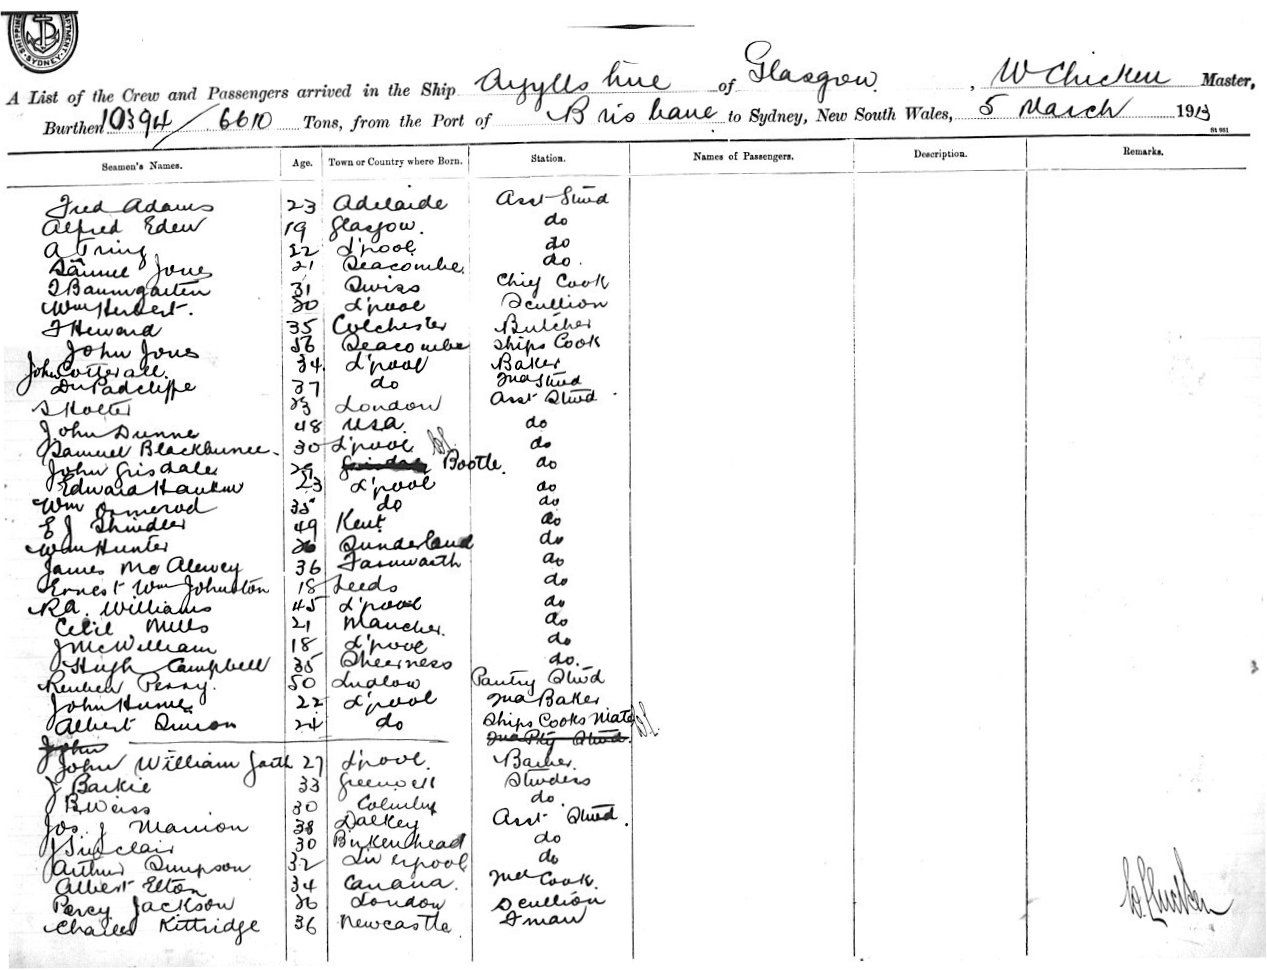 SHIPPING DEPARTMENT. SYDNEY.
A List of the Crew and Passengers arrived in the Ship Argyllshire of Glasgow, W Chicken Master,
Burthen 10394/6610 Tons, from the Port of Brisbane to Sydney, New South Wales, 5 March 1913
St 931
Seamen's Names. Age. Town or Country where Born. Station. Names of Passengers. Description. Remarks.
Fred Adams 23 Adelaide Asst Stwd
Alfred Eden 19 Glasgow. do
A Tring 22 L'pool do
Samuel Jones 21 Seacombe do.
Baumgarten 31 Swiss Chief Cook
Wm Herbert. 30 L'pool Scullion
F Heward 35 Colchester Butcher
John Jones 56 Seacombe Ships Cook
John Cotterall. 34. L'pool Baker
37 do 2nd Stwd
S Holter 23 London Asst Stwd
John Dunne 48 USA do
Samuel Blackburne. 30 L'pool do
John Grisdale 29 Bootle. do
Edward 23 L'pool do
Wm Ormerod 35 do do
E J Shindler 49 Kent do
Wm Hunter 26 Sunderland do
James Mc Alevey 36 Farnworth do
Ernest Wm Johnston 18 Leeds do
R.A. Williams 45 L'pool do
Cecil Mills 21 Mancher. do
J McWilliam 18 L'pool do
Hugh Campbell 35 Sheerness do.
Reuben Perry. 50 Ludlow Pantry Stwd
John 22 L'pool 2nd Baker
Albert 24 do Ships Cooks Mate
John 2nd Pty Stwd.
John William Garth 27 L'pool. Barber.
J Barkie 33 Stwdess
B Weiss 30 do.
Jos. J Mannion 38 Dalkey Asst Stwd.
J Sinclair 30 Birkenhead do
Arthur Simpson 32 Liverpool do
Albert Elton 34 Canada. 2nd Cook.
Percy Jackson 26 London Scullion
Charles Kittridge 36 Newcastle. Fman
W Chicken